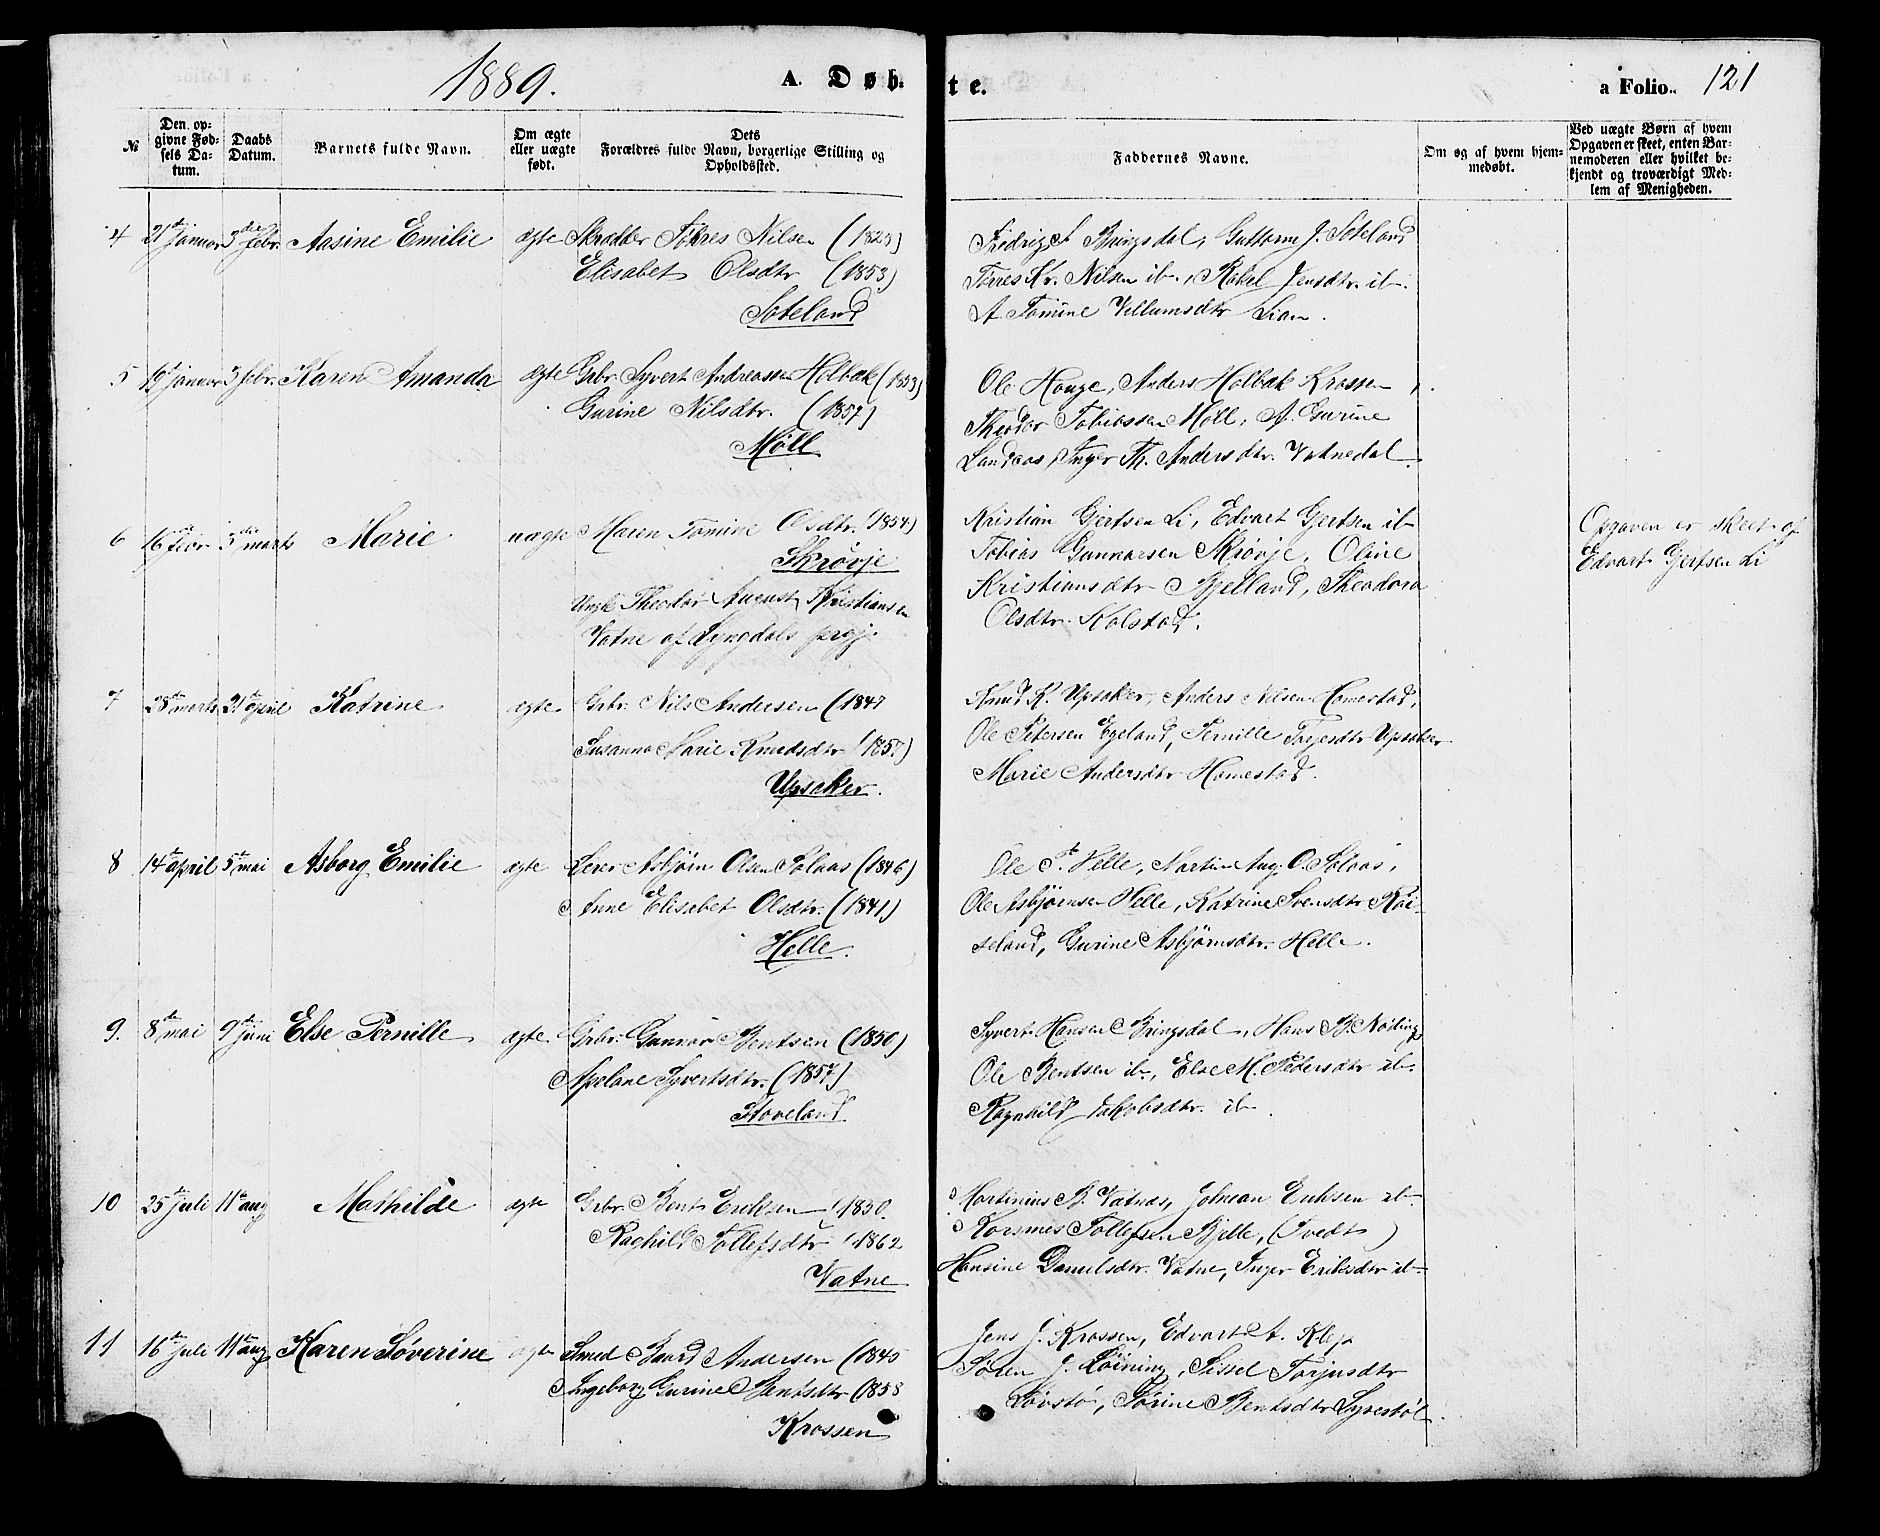 1889. A. Døbte. a Folio. 121
№ Den opgivne Fødsels Datum. Daabs Datum. Barnets fulde Navn. Om ægte eller uægte født. Dets Forældres fulde Navn, borgerlige Stilling og Opholdssted. Faddernes Navne. Om og af hvem hjemmedøbt. Ved uægte Børn af hvem Opgaven er skeet, enten Barnemoderen eller hvilket bekjendt og troværdigt Medlem af Menigheden.
4 21de januar 3die febr. Aasine Emilie ægte Skrædder Tørres Nilsen (1823)
Elisabet Olsdtr (1853)
Soteland
Bringsdal, Guttorm J. Soteland
Tørres Kr. Nilsen ib., Rakel Jensdtr. ib.
A Tomine Villumsdtr Lian.
5 19de januar 3 febr. Karen Amanda ægte Grbr. Syvert Andreassen Holbæk (1853)
Gurine Nilsdtr. (1857)
Møll
Ole Houge, Anders Holbæk Krossen,
Theodor Tobiassen Møll, A. Gurine
Landaas, Inger Th. Andersdtr. Vatnedal
6 16de febr 3die marts Marie uægte Maren Tomine Olsdtr. (1854)
Skrøvje
Ungk. Theodor August Kristiansen
Vatne af Lyngdals prgj.
Kristian Gjertsen Li, Edvart Gjertsen ib
Tobias Gunnarsen Skrøvje, Oline
Kristiansdtr Bjelland, Theodora
Olsdtr. Kolstad.
Opgaven er skeet af
Edvart Gjertsen Li
7 28de marts 21de april Katrine ægte. Grbr. Nils Andersen (1847
Susanna Marie Knudsdtr (1857)
Upsaker.
Knud K. Upsaker, Anders Nilsen Homestad,
Ole Petersen Egeland, Pernille Torjesdtr Upsaker
Marie Andersdtr Homestad.
8 14de april 5te mai Asborg Emilie ægte Asbjørn Olsen Solaas (1846)
Anne Elisabet Olsdtr. (1841)
Helle.
Ole T. Helle, Martin Aug. O. Solaas,
Ole Asbjørnsen Helle, Katrine Svensdtr Rai-
seland, Gurine Asbjørnsdtr. Helle.
9. 8de mai 9de juni Else Pernille ægte. Grbr. Gunnar Bentsen (1850)
Apelone Syvertsdtr. (1857)
Stoveland
Syvert Hansen Bringsdal, Hans B. Nøding
Ole Bentsen ib., Else M. Pedersdtr ib.
Ragnhild Jakobsdtr. ib.
10 25de juli 11te aug Mathilde ægte Grbr. Bent Eriksen (1850.
Raghild Tollefsdtr (1862
Vatne
Martinius B. Vatne, Johan Eriksen ib
Rasmus Tollefsen Bjelle, (Tvedt)
Hansine Danielsdtr. Vatne, Inger Eriksdtr ib
11 16de juli 11te aug Karen Søverine ægte Smed Baard Andersen (1845
Ingeborg Gurine Bentsdtr (1858
Krossen
Jens J. Krossen, Edvart A. Klep
Søren J. Løining, Sissel Torjusdtr
Løvstø, Sørine Bentsdtr